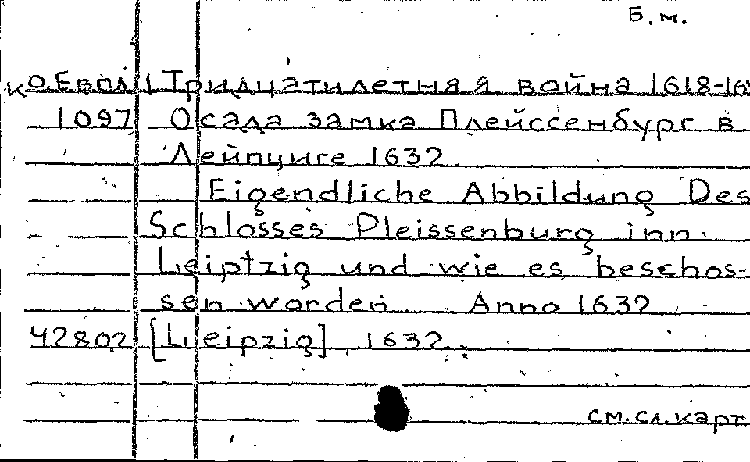 Б.м.
Ко.Евол 1 Тридцатилетняя война 1618-16
1097 Осада замка Плейссенбург в
Лейпциге 1632.
Eigendliche Abbildung Des
Schlosses Pleissenburg inn
Leiptzig und wie es beschos-
sen worden. Anno 1632
42802 [Leipzig], 1632.
см.сл.карт